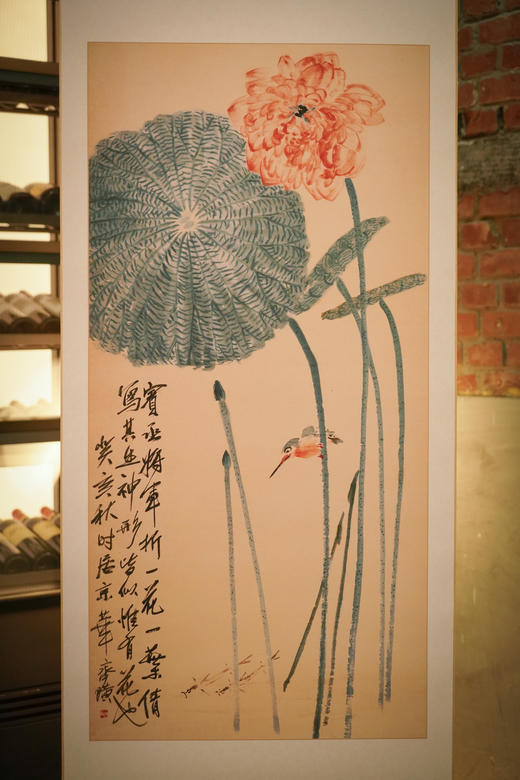 寶丞將軍折一花一葉倩
寫其神形皆似惟有花也
癸亥秋时居京華齊璜